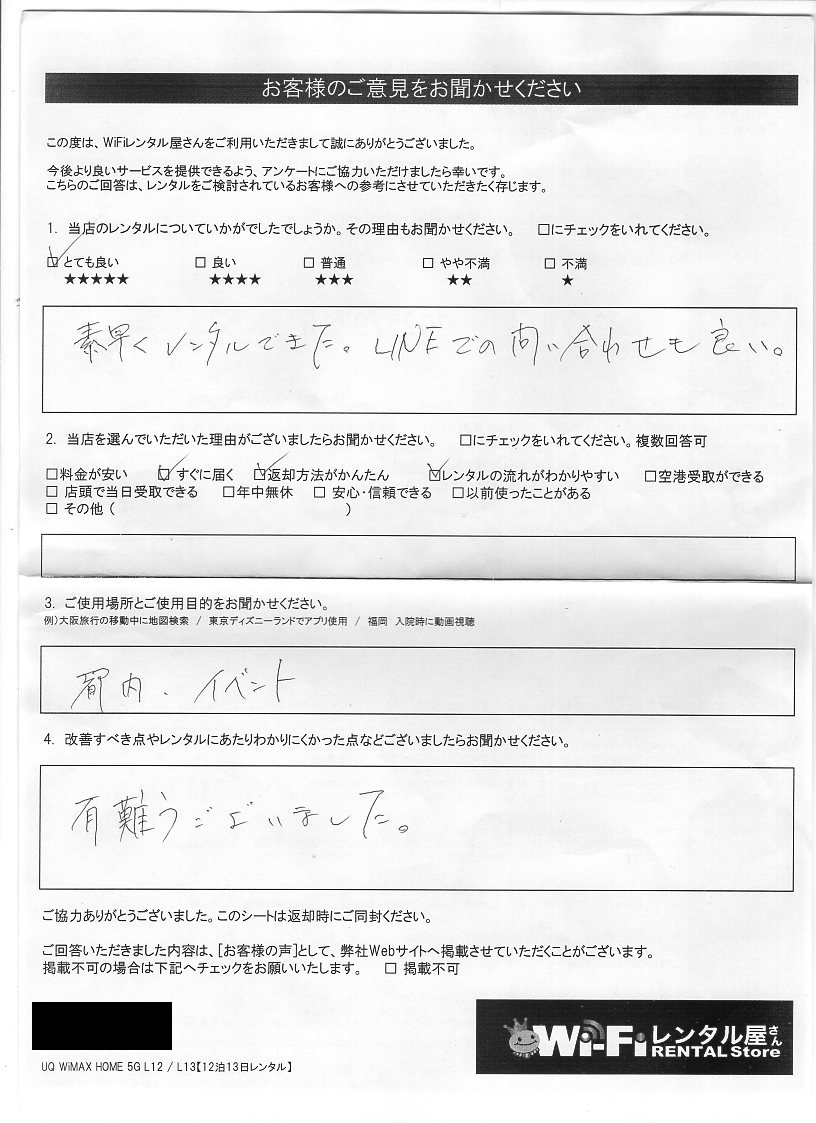 お客様のご意見をお聞かせください
この度は、WiFiレンタル屋さんをご利用いただきまして誠にありがとうございました。
今後より良いサービスを提供できるよう、アンケートにご協力いただけましたら幸いです。
こちらのご回答は、レンタルをご検討されているお客様への参考にさせていただきたく存じます。
1. 当店のレンタルについていかがでしたでしょうか。その理由もお聞かせください。 □にチェックをいれてください。
☑ とても良い □ 良い □ 普通 □ やや不満 □ 不満
★★★★★ ★★★★ ★★★ ★★ ★
素早くレンタルできた。LINEでの問い合わせも良い。
2. 当店を選んでいただいた理由がございましたらお聞かせください。 □にチェックをいれてください。複数回答可
□料金が安い ☑すぐに届く ☑返却方法がかんたん ☑レンタルの流れがわかりやすい □空港受取ができる
□ 店頭で当日受取できる □年中無休 □ 安心・信頼できる □以前使ったことがある
□ その他 ( )
3. ご使用場所とご使用目的をお聞かせください。
例)大阪旅行の移動中に地図検索 / 東京ディズニーランドでアプリ使用 / 福岡 入院時に動画視聴
都内、イベント
4. 改善すべき点やレンタルにあたりわかりにくかった点などございましたらお聞かせください。
有難うございました。
ご協力ありがとうございました。このシートは返却時にご同封ください。
ご回答いただきました内容は、[お客様の声]として、弊社Webサイトへ掲載させていただくことがございます。
掲載不可の場合は下記へチェックをお願いいたします。 □ 掲載不可
Wi-Fi レンタル屋さん
RENTAL Store
UQ WiMAX HOME 5G L12 / L13【12泊13日レンタル】